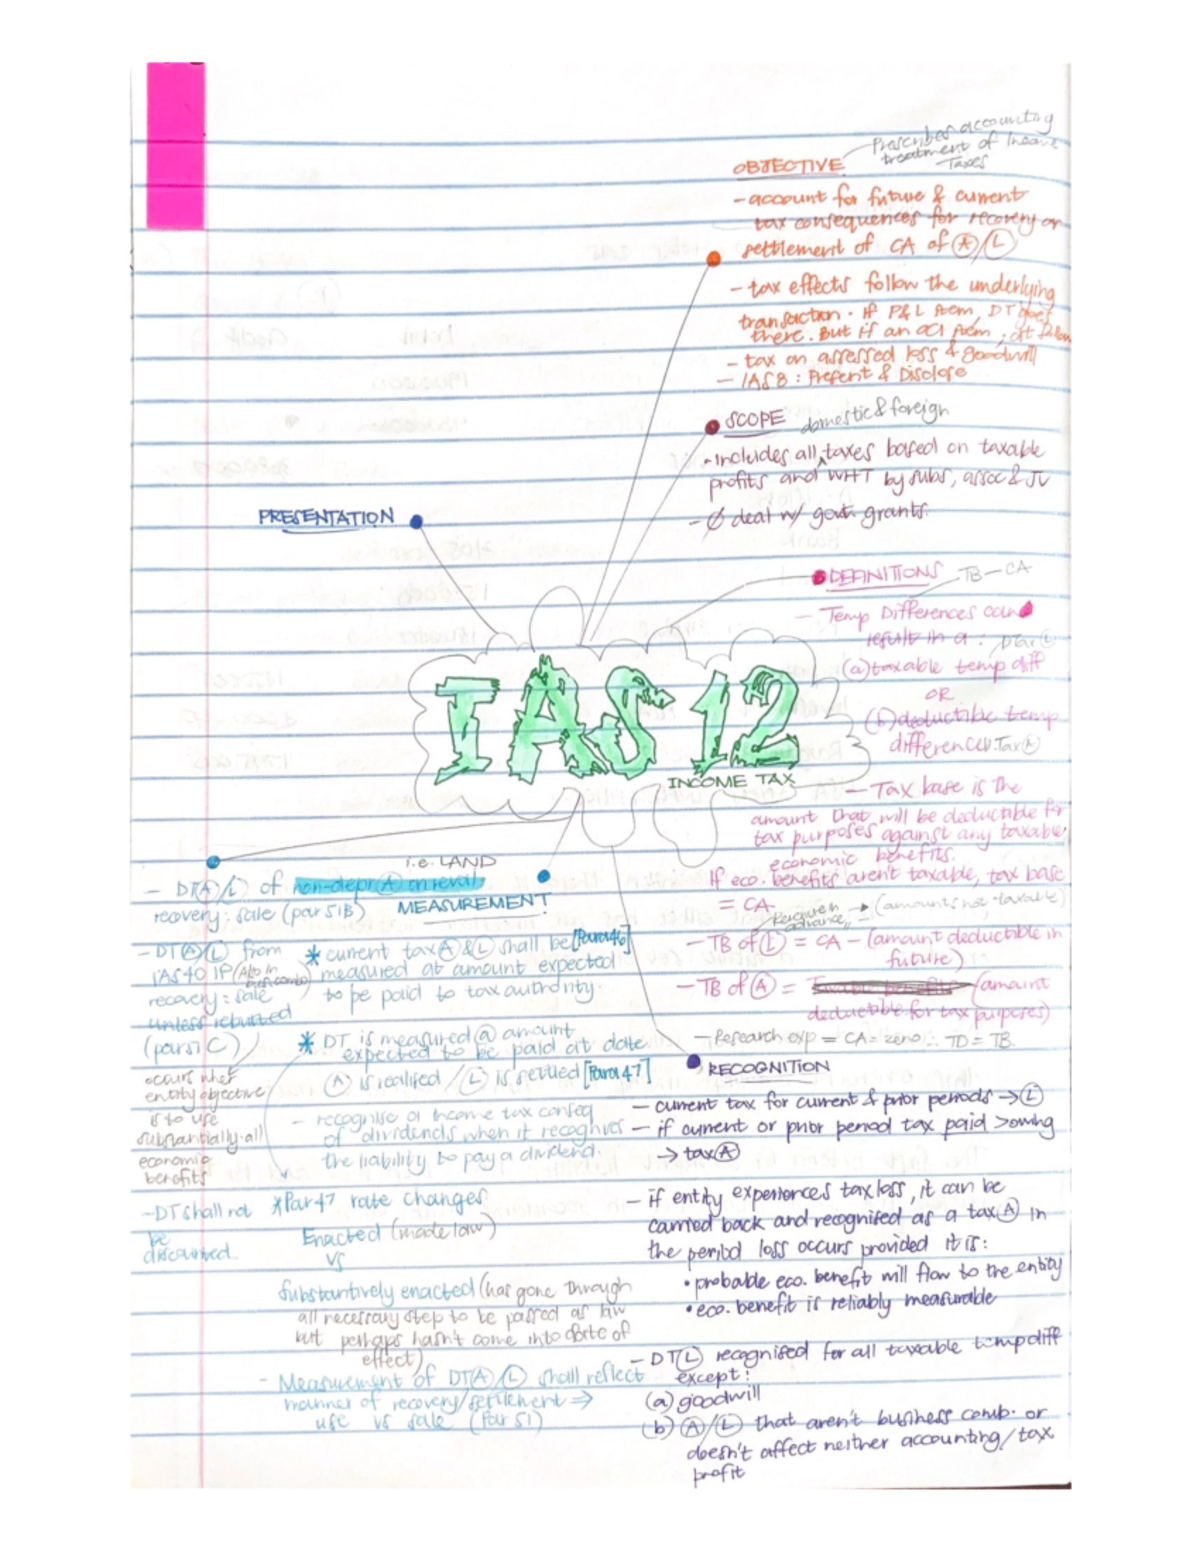 OBJECTIVE
Prescribes accounting
treatment of Income
Taxes
- account for future & current
tax consequences for recovery or
settlement of CA of Ⓐ/Ⓛ
- tax effects follow the underlying
transaction. If P&L item, DT goes
there. But if an OCI item,
- tax on assessed loss & goodwill
- IASB: Present & Disclose
SCOPE domestic & foreign
- Includes all taxes based on taxable
profits and WHT by subs, assoc & JV
- Ø deal w/ govt. grants.
PRESENTATION
DEFINITIONS TB - CA
- Temp Differences can
result in a: DTax Ⓛ
(a) taxable temp diff
OR
(b) deductible temp
difference D.Tax Ⓐ
IAS 12
INCOME TAX
- Tax base is the
amount that will be deductible for
tax purposes against any taxable
economic benefits.
If eco. benefits aren't taxable, tax base
= CA.
Revenue in advance → (amounts not taxable)
- TB of Ⓛ = CA - (amount deductible in
future)
- TB of Ⓐ = (amount
deductible for tax purposes)
- Research exp = CA = zero ∴ TD = TB.
i.e. LAND
- DTⒶ/Ⓛ of non-depr Ⓐ on reval
recovery: sale (par 51B)
- DTⒶ/Ⓛ from
IAS 40 IP (Also in
bus. combo)
recovery: sale
unless rebutted
(par 51 C)
occurs when
entity objective
is to use
substantially all
economic
benefits
- DT shall not
be
discounted.
MEASUREMENT
* current tax Ⓐ & Ⓛ shall be [Para 46]
measured at amount expected
to be paid to tax authority.
* DT is measured @ amount
expected to be paid at date
Ⓐ is realised / Ⓛ is settled [Para 47]
- recognise a income tax conseq
of dividends when it recognises
the liability to pay a dividend.
* Par 47 rate changes
Enacted (made law)
VS
Substantively enacted (has gone through
all necessary step to be passed as law
but perhaps hasn't come into date of
effect)
- Measurement of DTⒶ/Ⓛ shall reflect
manner of recovery/settlement ⇒
use vs sale (par 51)
RECOGNITION
- current tax for current & prior periods → Ⓛ
- if current or prior period tax paid > owing
→ tax Ⓐ
- if entity experiences tax loss, it can be
carried back and recognised as a tax Ⓐ in
the period loss occurs provided it is:
• probable eco. benefit will flow to the entity
• eco. benefit is reliably measurable
- DTⓁ recognised for all taxable temp diff
except:
(a) goodwill
(b) Ⓐ/Ⓛ that aren't business comb. or
doesn't affect neither accounting/tax
profit